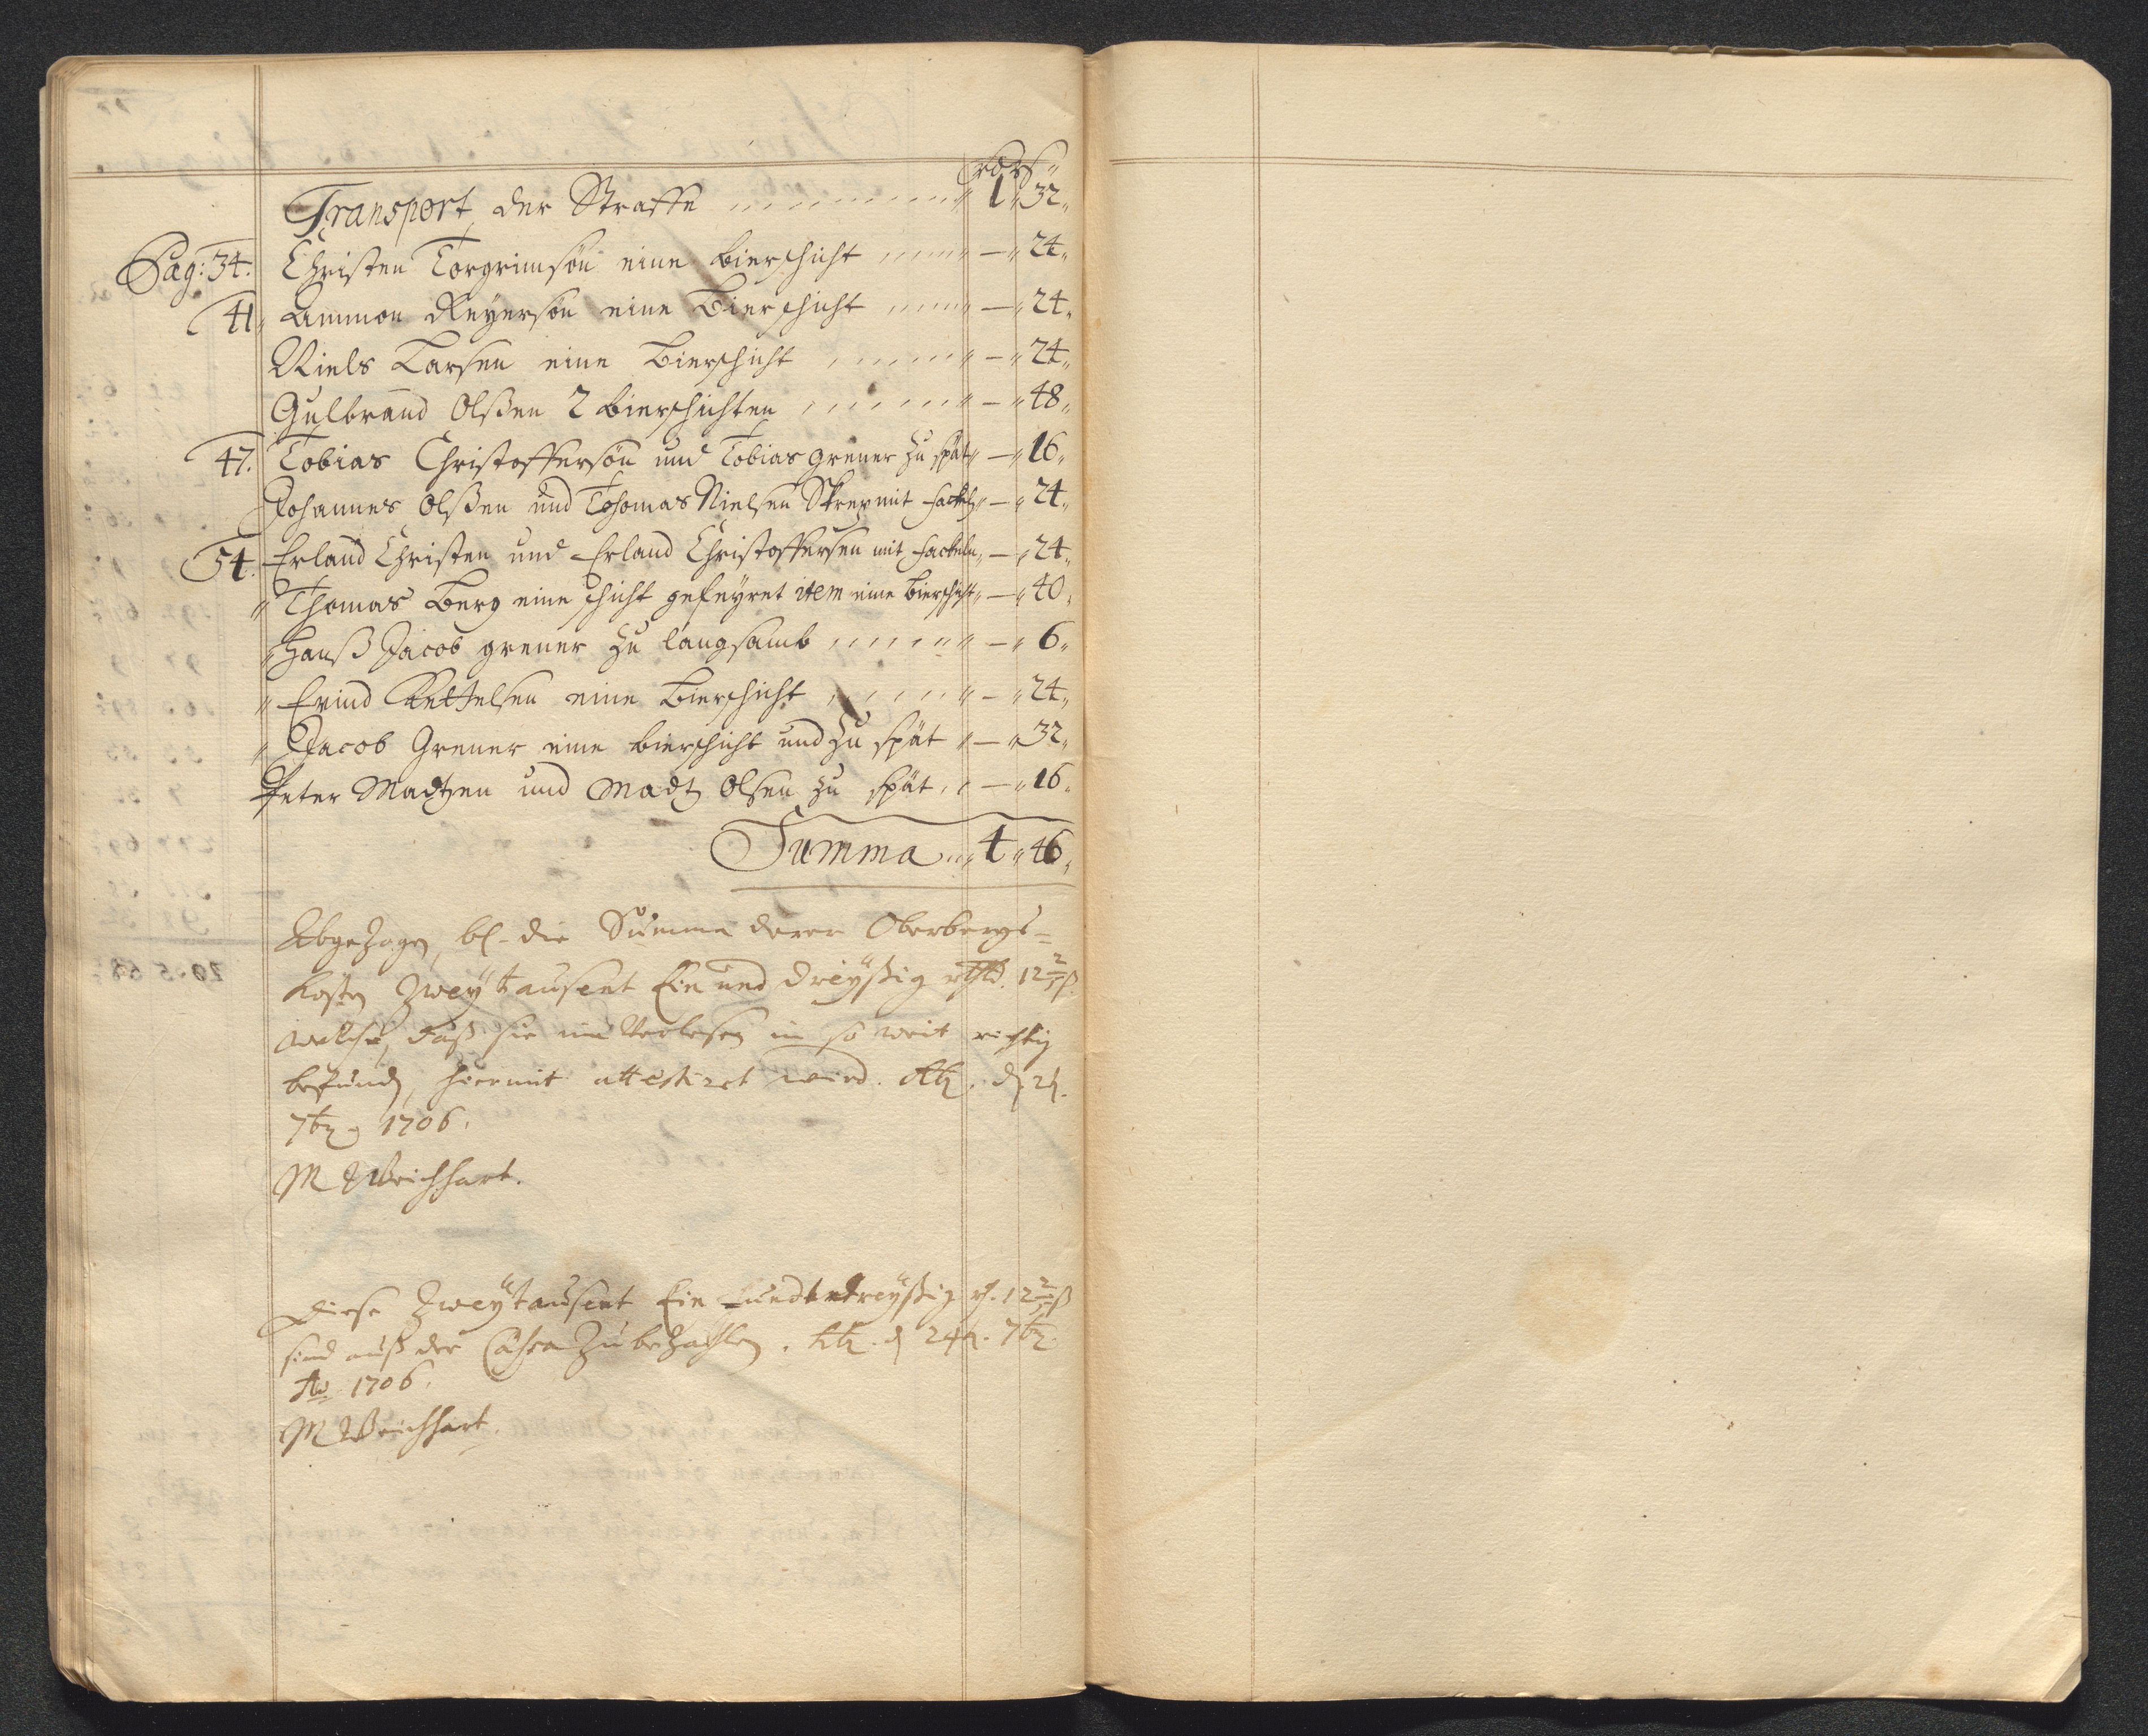 Transport der Straffe 1 32
Pag: 34. Christen Torgrimsön eine bierschicht — 24
41 Ammon Reyersön eine Bierschicht — 24
Niels Larsen eine Bierschicht — 24
Gulbrand Olßen 2 bierschichten — 48
47. Tobias Christoffersön und Tobias grener zu spät — 16
Johannes Olßen und Tohomas Nielsen mit fackeln — 24
54. Erland Christen und Erland Christoffersen mit fackeln — 24
" Thomas Berg eine schicht gefeyret item eine bierschicht — 40
" Hanß Jacob grener zu langsamb — 6
" Evind Kettelsen eine Bierschicht — 24
" Jacob Grener eine bierschicht und zu spät — 32
Peter Madtzen und Madtz Olsen zu spät — 16
Summa 4 46
Abgezogen, bl. die Summa derer Oberbergs=
kosten Zweytausent Ein und dreyßig 12
welche, daß sie im Verlesen in so weit richtig
befunden, hiermit attestiret wird. d 24.
7br 1706.
M Weichhart.
Diese Zweytausent Ein und dreyßig 12
sind auß der Cassa zu bezahlen. d 24. 7br.
Ao 1706.
M Weichhart.